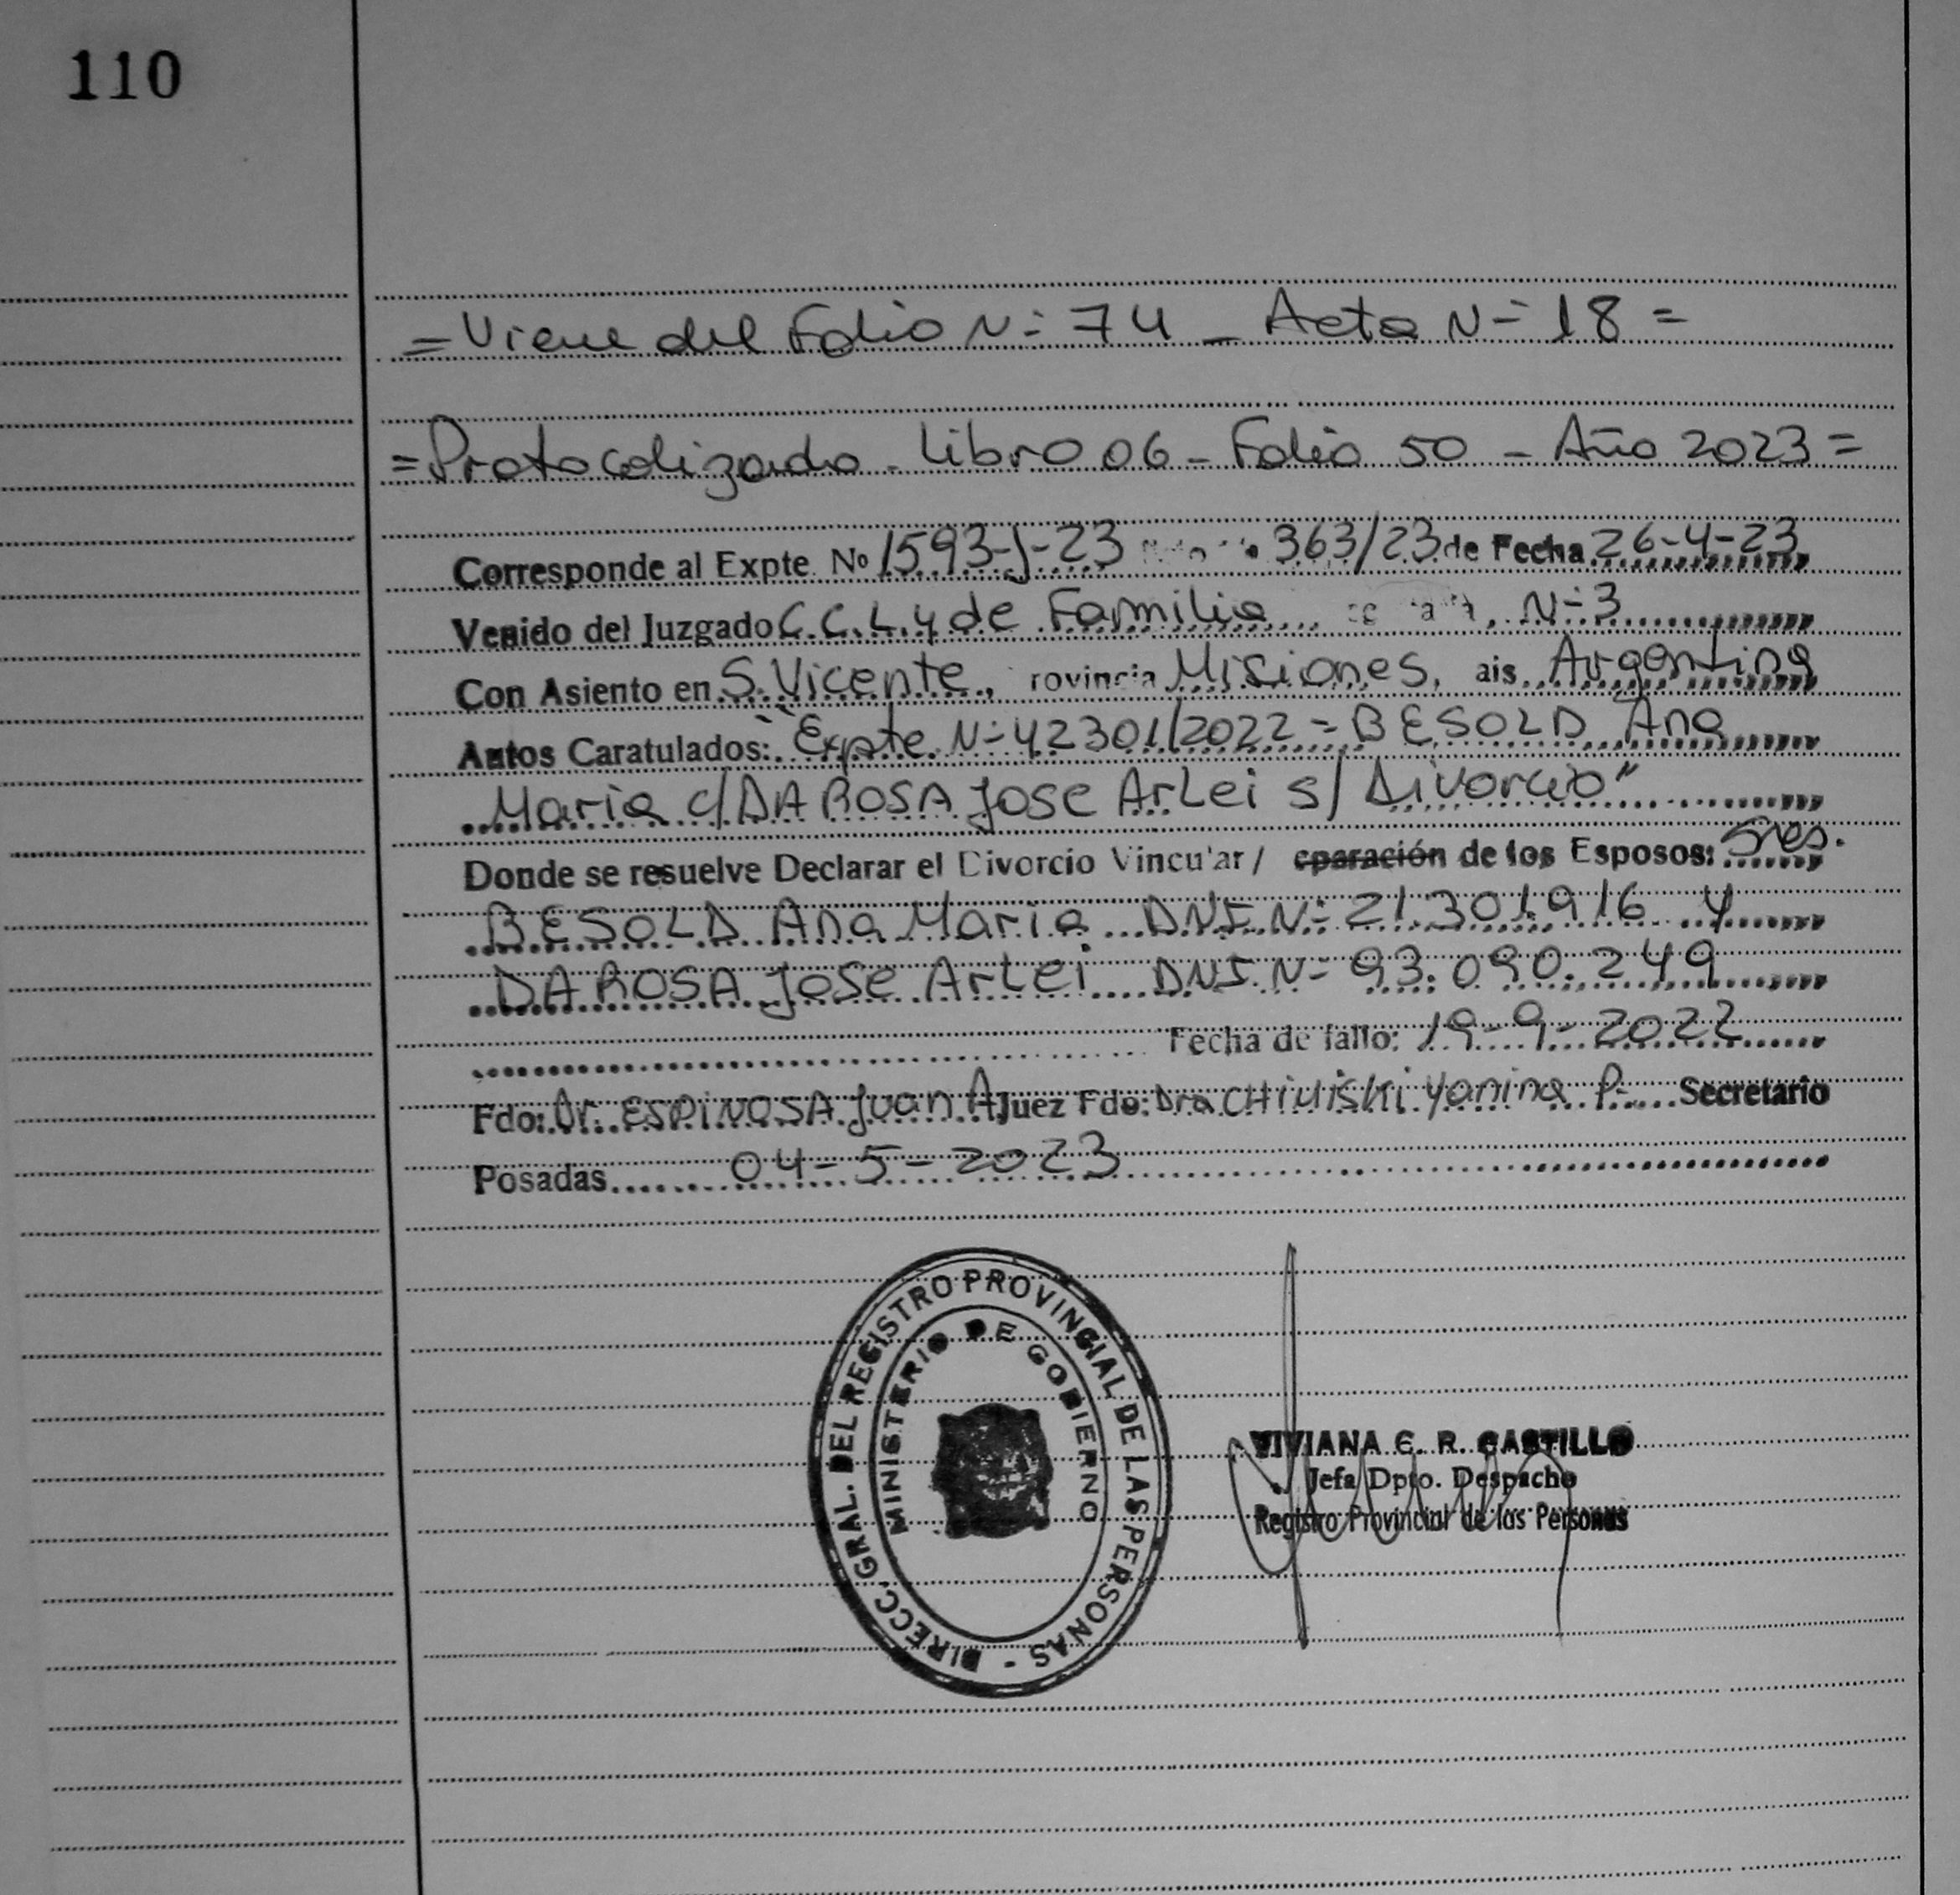 110
= Viene del Folio N= 74 - Acta N= 18 =
= Protocolizado - Libro 06 - Folio 50 - Año 2023 =
Corresponde al Expte. No 1593-J-23 363/23 de Fecha 26-4-23
Venido del Juzgado C.C.L. y de Familia N=3
Con Asiento en S. Vicente, rovincia Misiones, ais Argentina
Autos Caratulados: "Expte. N=42301/2022 = BESOLD Ana
Maria c/ DA ROSA Jose Arlei s/ Divorcio"
Donde se resuelve Declarar el Divorcio Vincular / eparación de los Esposos: Sres.
BESOLD Ana Maria DNI. N= 21.301.916 y
DA ROSA Jose Arlei DNI. N= 93.090.249
Fecha de fallo: 19-9-2022
Fdo: Dr. ESPINOSA Juan A Juez Fdo: Dra CHIVISKI Yanina P= Secretario
Posadas 04-5-2023
DIRECC. GRAL. DEL REGISTRO PROVINCIAL DE LAS PERSONAS -
MINISTERIO DE GOBIERNO
VIVIANA E. R. CASTILLO
Jefa Dpto. Despacho
Registro Provincial de las Personas